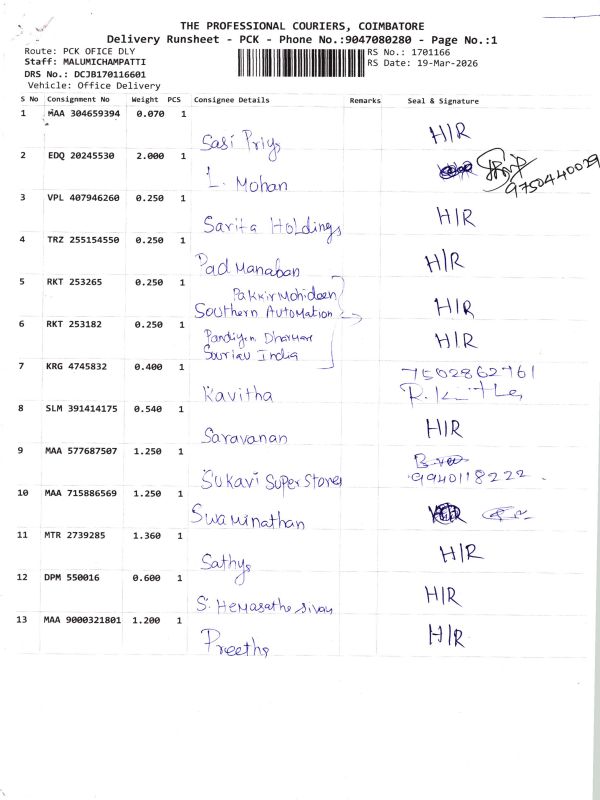 THE PROFESSIONAL COURIERS, COIMBATORE
Delivery Runsheet - PCK - Phone No.:9047080280 - Page No.:1
Route: PCK OFICE DLY RS No.: 1701166
Staff: MALUMICHAMPATTI RS Date: 19-Mar-2026
DRS No.: DCJB170116601
Vehicle: Office Delivery
S No Consignment No Weight PCS Consignee Details Remarks Seal & Signature
1 MAA 304659394 0.070 1
Sasi Priya H/R
2 EDQ 20245530 2.000 1
L. Mohan 9750440029
3 VPL 407946260 0.250 1
Sarita Holdings H/R
4 TRZ 255154550 0.250 1
Padmanaban H/R
5 RKT 253265 0.250 1
Pakkir Mohideen
Southern Automation H/R
6 RKT 253182 0.250 1
Pandiyan Dharmar H/R
Souriau India
7 KRG 4745832 0.400 1
7502862761
Kavitha
8 SLM 391414175 0.540 1
Saravanan H/R
9 MAA 577687507 1.250 1
Sukavi Super Stores 9940118222
10 MAA 715886569 1.250 1
Swaminathan
11 MTR 2739285 1.360 1
Sathya H/R
12 DPM 550016 0.600 1
S. Hemasathe sivam H/R
13 MAA 9000321801 1.200 1
Preetha H/R